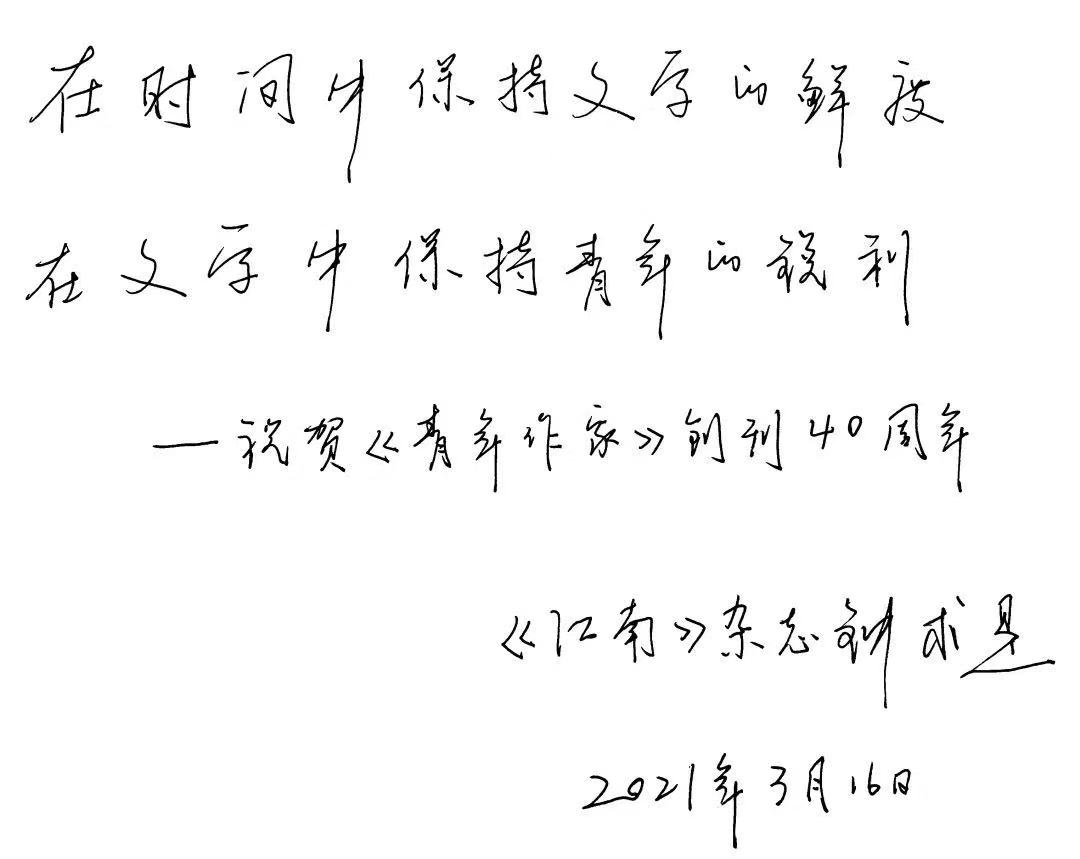 在时间中保持文字的鲜度
在文字中保持青年的锐利
—祝贺《青年作家》创刊40周年
《江南》杂志钟求是
2021年3月16日